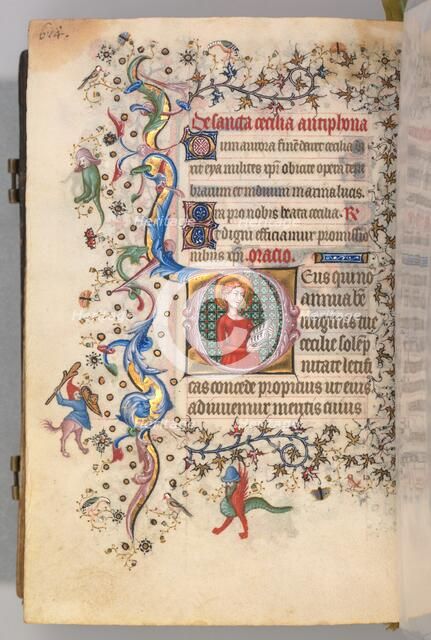 De sancta cecilia antiphona
Dum aurora finem daret cecilia di
xit eya milites xpi abicite opera tene
brarum et induimini arma lucis.
Ora pro nobis beata cecilia. R
Ut digni efficiamur promissio
nibus xpi. oracio.
Deus qui no
annua be
virginis tue
cecilie solep
nitate letifi
cas concede propicius ut eius
adiuvemur meritis cuius
Heritage
Images